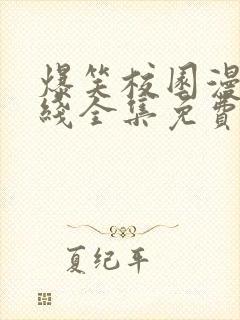 爆笑校园漫
线全集免费
夏纪年